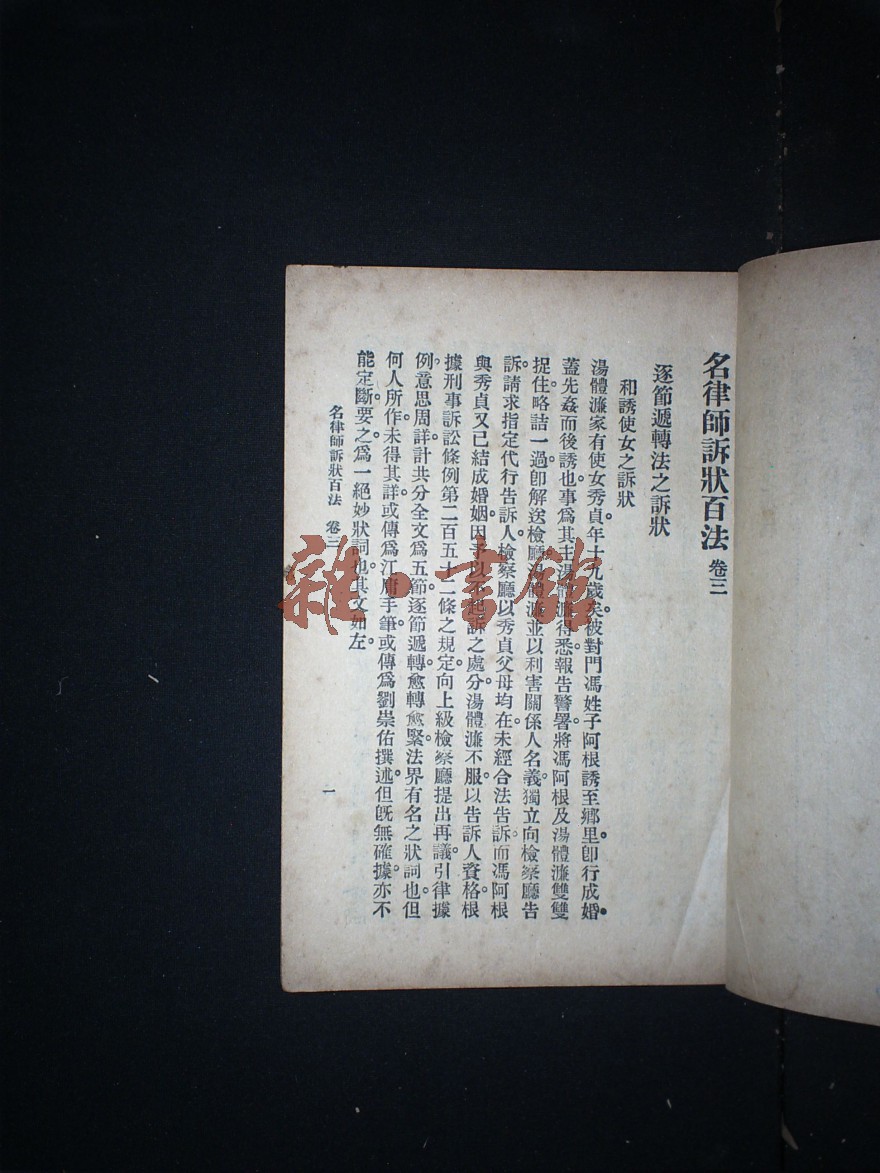 名律師訴狀百法 卷三
逐節遞轉法之訴狀
和誘使女之訴狀
湯體濂家有使女秀貞。年十九歲矣。被對門馮姓子阿根誘至鄉里。卽行成婚。
蓋先姦而後誘也。事爲其主湯體濂得悉。報告警署。將馮阿根及湯體濂雙雙
捉住。略詰一過。卽解送檢廳。湯體濂並以利害關係人名義。獨立向檢察廳告
訴。請求指定代行告訴人。檢察廳以秀貞父母均在。未經合法告訴。而馮阿根
與秀貞又已結成婚姻。因予以不起訴之處分。湯體濂不服。以告訴人資格。根
據刑事訴訟條例第二百五十二條之規定。向上級檢察廳提出再議。引律據
例。意思周詳。計共分全文爲五節。逐節遞轉。愈轉愈緊。法界有名之狀詞也。但
何人所作。未得其詳。或傳爲江庸手筆。或傳爲劉崇佑撰述。但旣無確據。亦不
能定斷。要之。爲一絕妙狀詞也。其文如左。
名律師訴狀百法 卷三
一
雜·書館